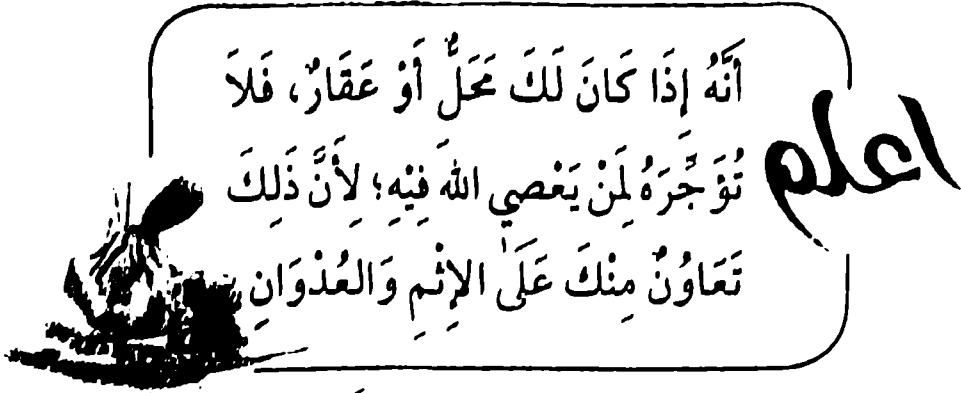 اعلم
أَنَّهُ إِذَا كَانَ لَكَ مَحَلٌّ أَوْ عَقَارٌ، فَلاَ
تُؤَجِّرَهُ لِمَنْ يَعْصِي اللهَ فِيْهِ؛ لِأَنَّ ذَلِكَ
تَعَاوُنٌ مِنْكَ عَلَى الإِثْمِ وَالعُدْوَانِ